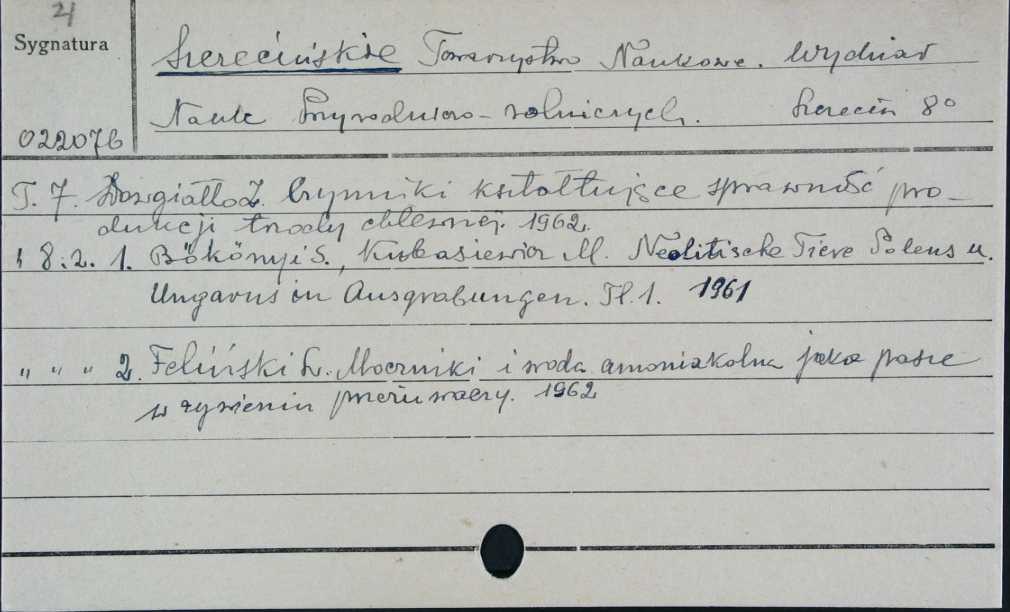 4
Sygnatura
Szczecińskie Towarzystwo Naukowe. Wydział
Nauk Przyrodniczo-rolniczych. Szczecin 8°
022076
T. 7. Dowgiałło Z. Czynniki kształtujące sprawność pro-
dukcji trzody chlewnej. 1962.
" 8. z. 1. Bökönyi S., Kubasiewicz M. Neolitische Tiere Polens u.
Ungarns in Ausgrabungen. Tl. 1. 1961
" " " 2. Feliński L. Moczniki i woda amoniakalna jako pasze
w żywieniu przeżuwaczy. 1962